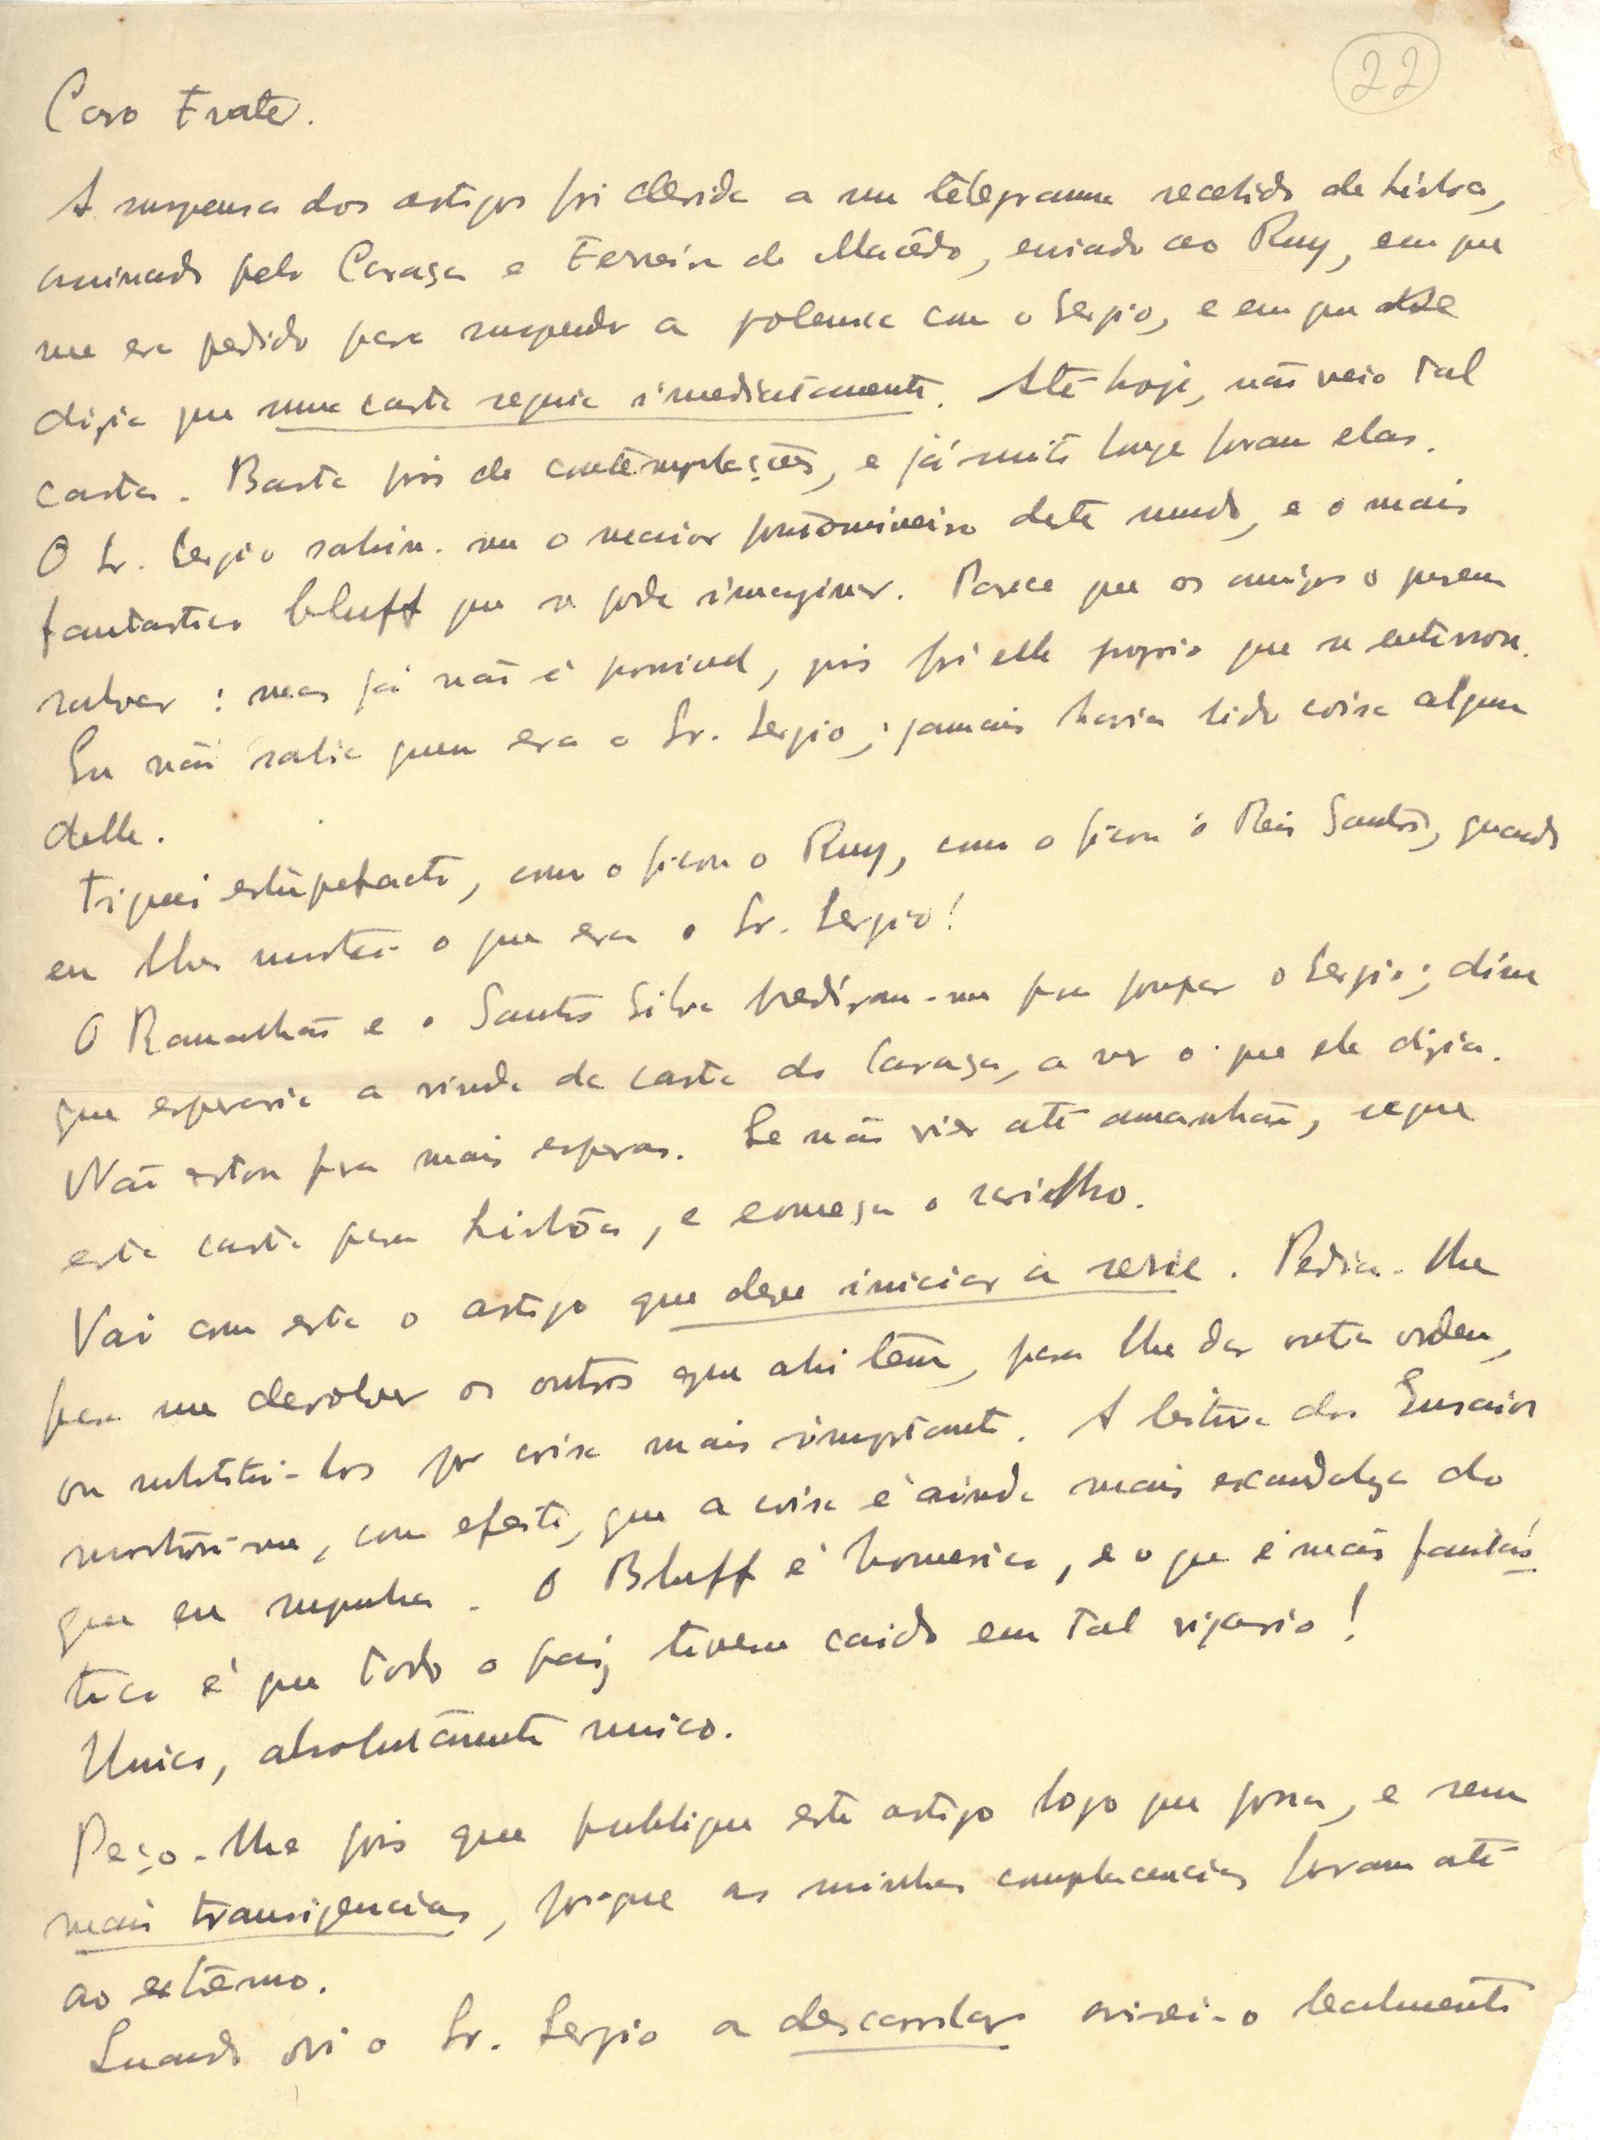 22
Caro Frate.
A suspensa dos artigos foi devida a um telegramma recebido de Lisboa,
assinado pelo Caraça e Ferreira de Macêdo, enviado ao Ruy, em que
me era pedido para suspender a polemica com o Sergio, e em que se
dizia que uma carta seguia imediatamente. Até hoje, não veio tal
carta. Basta pois de contemplações, e já muito longe foram elas.
O Sr. Sergio sahiu-me o maior pantomineiro deste mundo, e o mais
fantastico bluff que se pode imaginar. Parece que os amigos o querem
salvar: mas já não é possivel, pois foi elle proprio que se enterrou.
Eu não sabia quem era o Sr. Sergio; jamais havia lido coisa alguma
delle.
Fiquei estupefacto, como o ficou o Ruy, como o ficou o Reis Santos, quando
eu lhes mostrei o que era o Sr. Sergio!
O Ramalhão e o Santos Silva pediram-me para poupar o Sergio; disse
que esperaria a vinda da carta do Caraça, a ver o que ele dizia.
Não estou para mais esperas. Se não vier até amanhã, segue
esta carta para Lisbôa, e começa o sarilho.
Vai com esta o artigo que deve iniciar a serie. Pedia-lhe
para me devolver os outros que ahi tem, para lhe dar outra ordem,
ou substitui-los por coisa mais importante. A leitura dos Ensaios
mostrou-me, com efeito, que a coisa é ainda mais escandalosa do
que eu supunha. O Bluff é homerico, e o que é mais fantás
tico é que todo o paiz tivesse caido em tal vigario!
Unico, absolutamente unico.
Peço-lhe pois que publique este artigo logo que possa, e sem
mais transigencias, porque as minhas complacencias foram até
ao extremo.
Quando vi o Sr. Sergio a descarrilar avisei-o lealmente